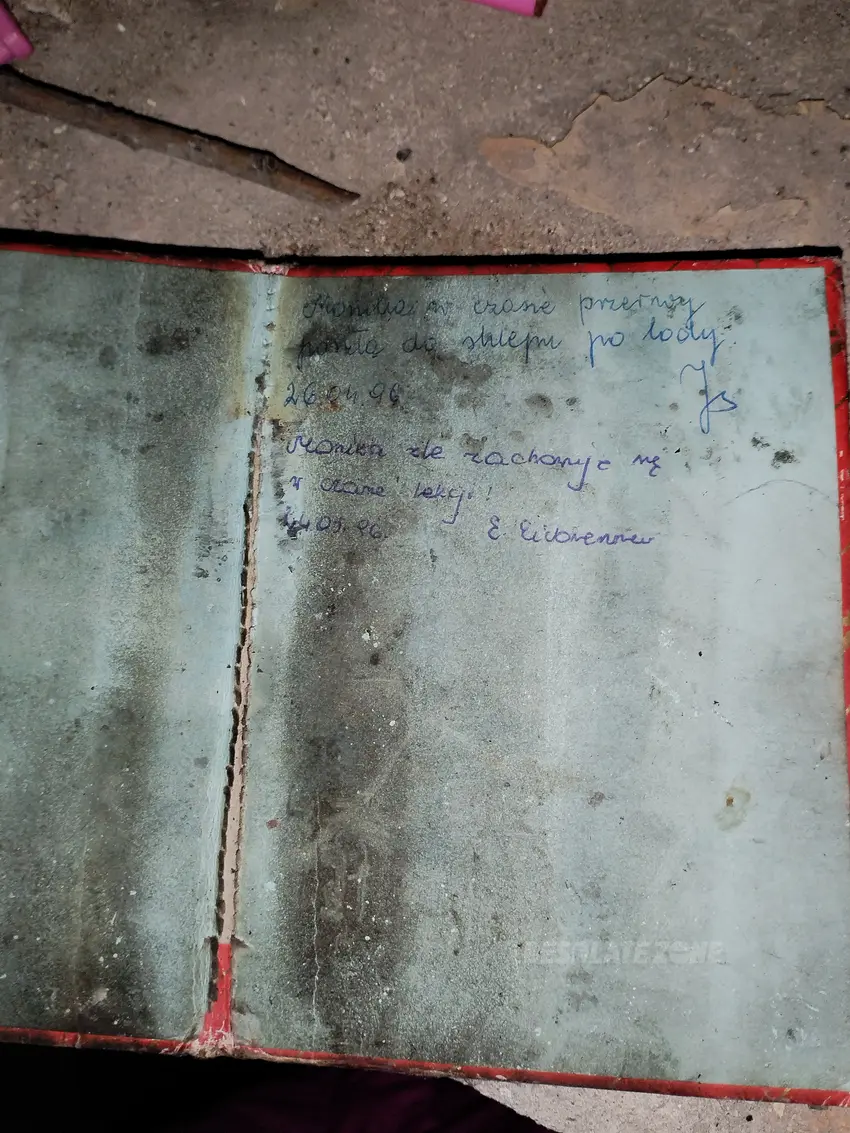 Monika w czasie przerwy
poszła do sklepu po lody.
26.04.96
Monika źle zachowuje się
w czasie lekcji!
.09.96. E.
DESOLATE ZONE